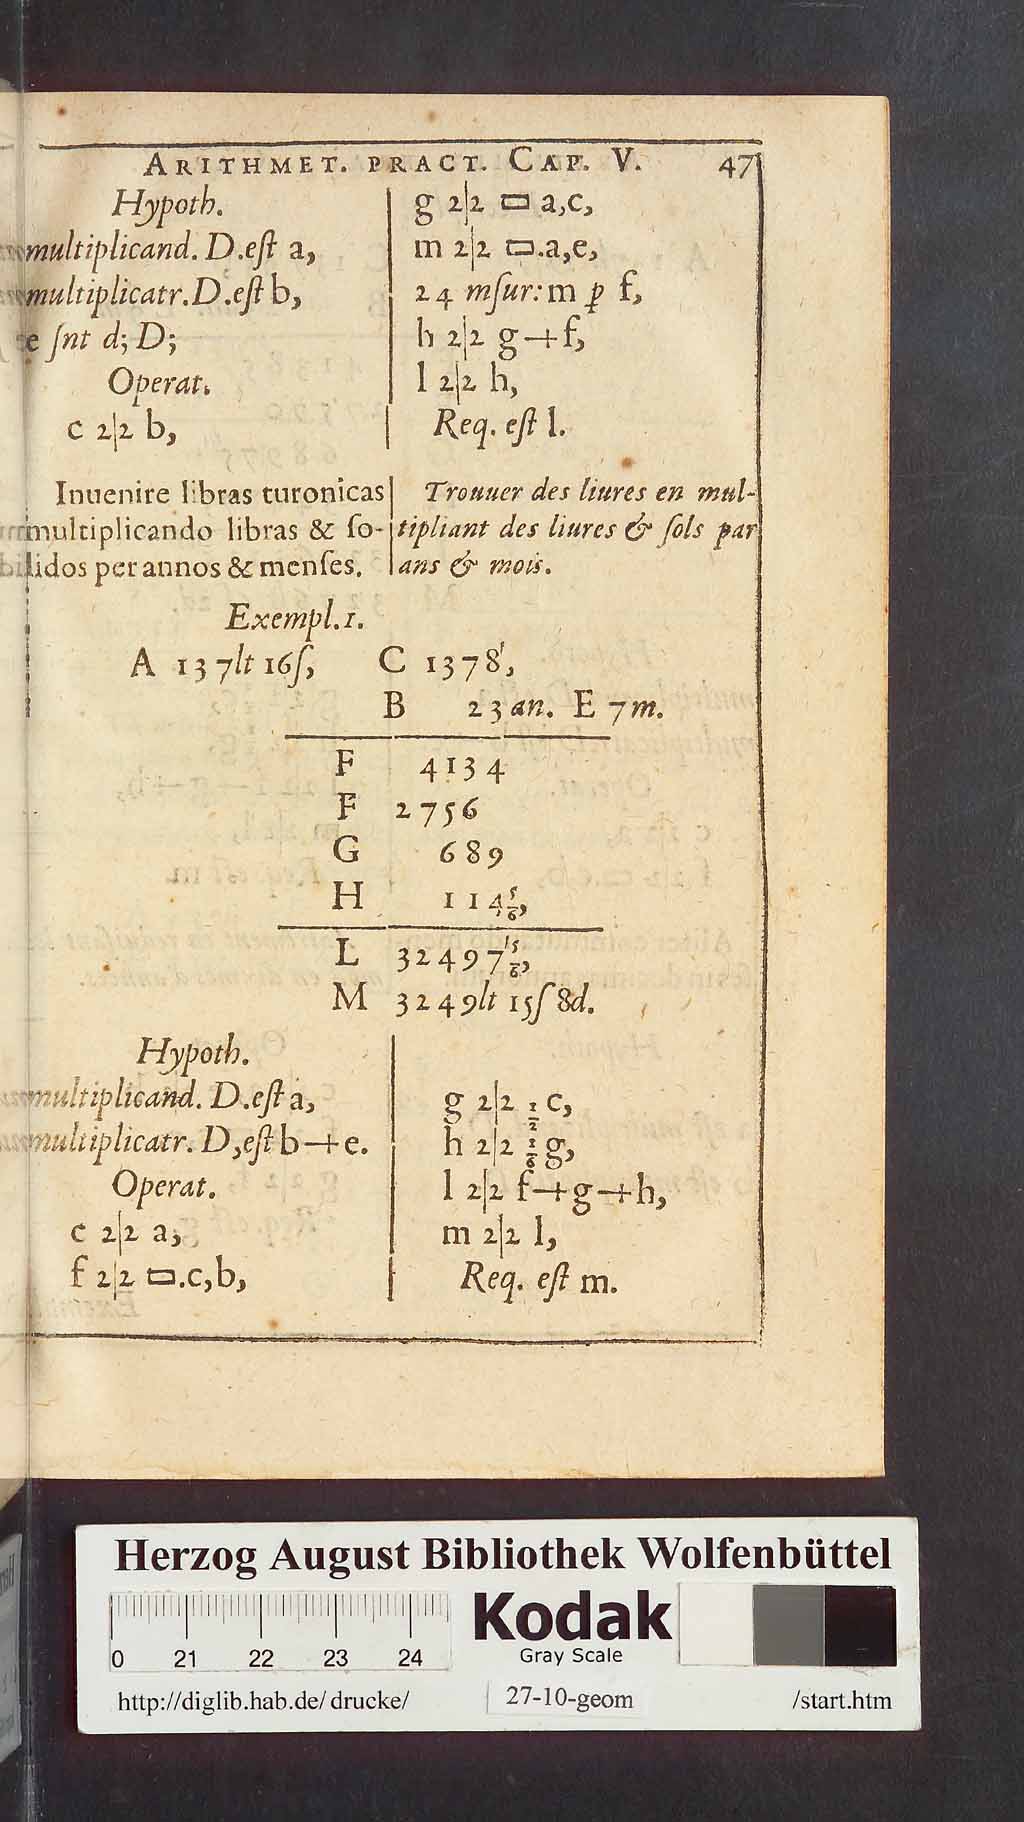 ARITHMET. PRACT. CAP. V. 47
Hypoth.
multiplicand. D.eſt a,
multiplicatr.D.eſt b,
ſnt d; D;
Operat.
c 2|2 b,
g 2|2 ▭ a,c,
m 2|2 ▭.a,e,
24 mſur: m p f,
h 2|2 g+f,
l 2|2 h,
Req. eſt l.
Inuenire libras turonicas
multiplicando libras & ſo-
lidos per annos & menſes.
Trouuer des liures en mul-
tipliant des liures & ſols par
ans & mois.
Exempl.1.
A 137lt 16ſ, C 1378',
B 23 an. E 7m.
F 4134
F 2756
G 689
H 114 5/6,
L 32497' 5/6,
M 3249lt 15ſ 8d.
Hypoth.
multiplicand. D.eſt a,
multiplicatr. D,eſt b+e.
Operat.
c 2|2 a,
f 2|2 ▭.c,b,
g 2|2 1/2 c,
h 2|2 1/6 g,
l 2|2 f+g+h,
m 2|2 l,
Req. eſt m.
Herzog August Bibliothek Wolfenbüttel
0 21 22 23 24
Kodak
Gray Scale
http://diglib.hab.de/ drucke/ 27-10-geom /start.htm